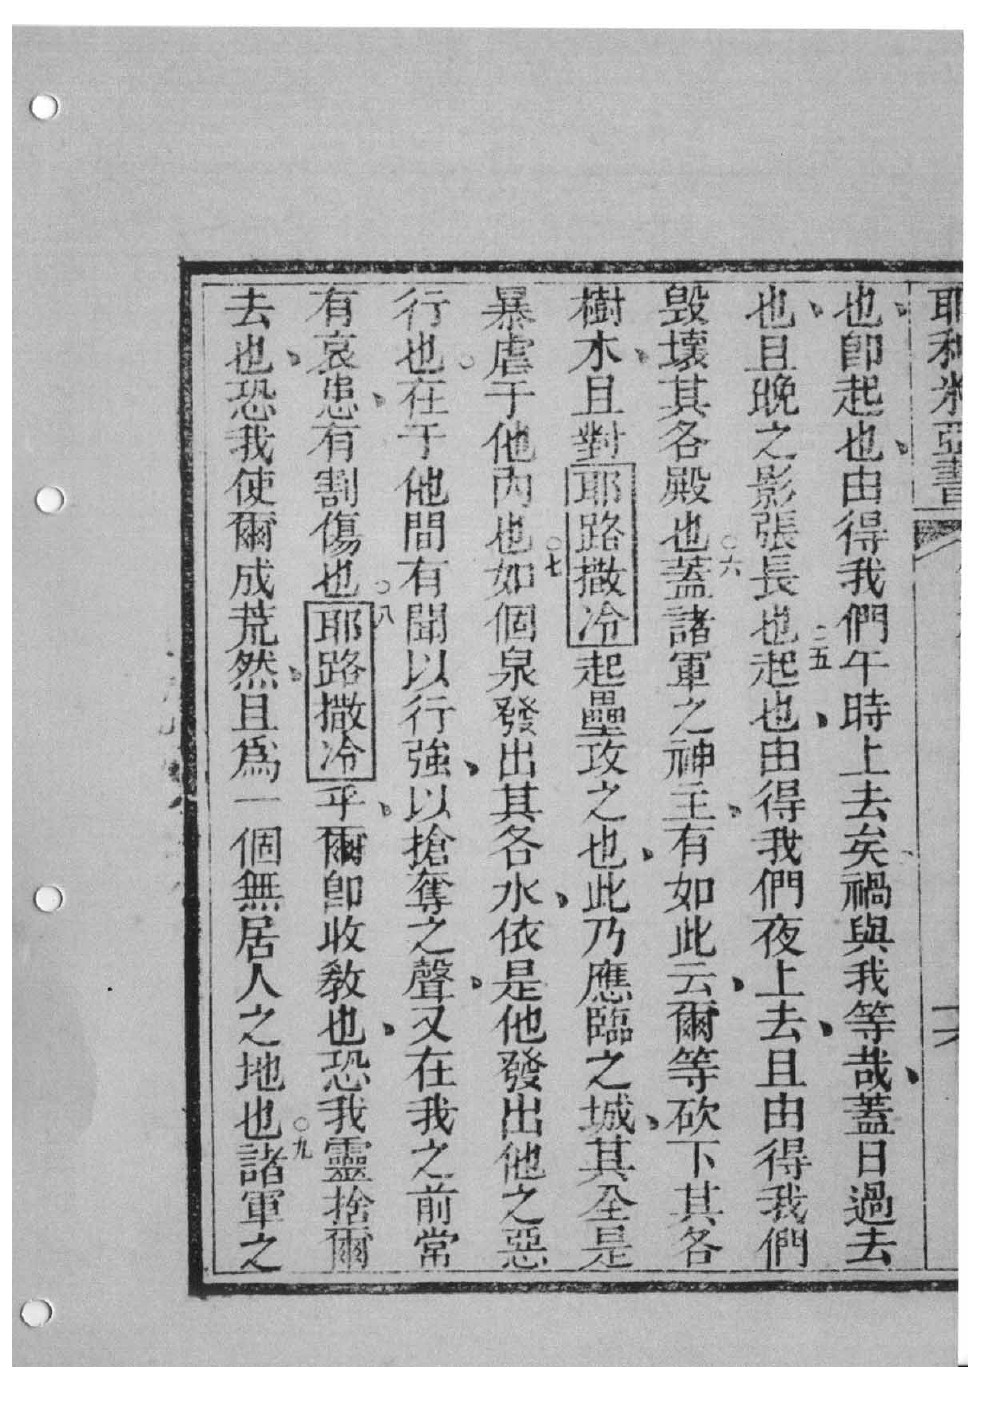 耶利米亞書
也、卽起也、由得我們午時上去矣、禍與我等哉、蓋日過去
也、且晚之影張長也。五起也、由得我們夜上去、且由得我們
毀壞其各殿也。六蓋諸軍之神主、有如此云、爾等砍下其各
樹木、且對耶路撒冷起壘攻之也、此乃應臨之城、其全是
暴虐于他內也。七如個泉發出其各水、依是他發出他之惡
行也。在于他間有聞以行強、以搶奪之聲、又在我之前常
有哀患、有割傷也。八耶路撒冷乎、爾卽收教也、恐我靈捨爾
去也、恐我使爾成荒然、且爲一個無居人之地也。九諸軍之